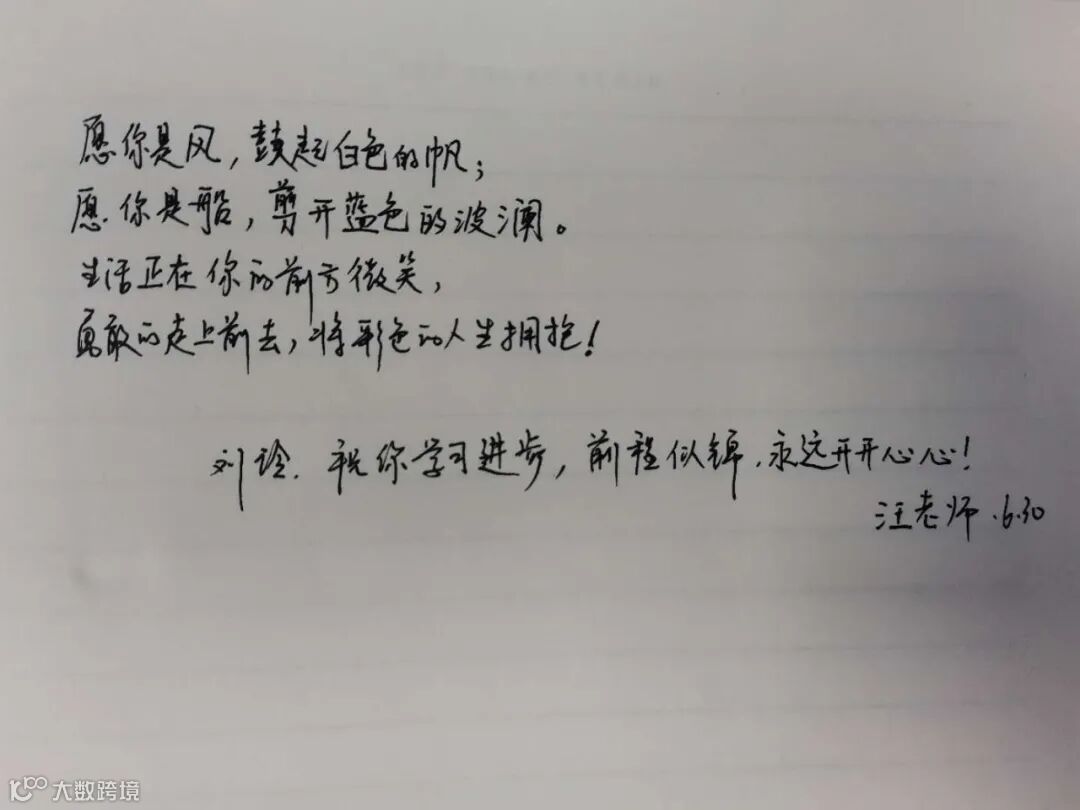 愿你是风，鼓起白色的帆；
愿你是船，剪开蓝色的波澜。
生活正在你的前方微笑，
勇敢的走上前去，将彩色的人生拥抱！
刘玲．祝你学习进步，前程似锦．永远开开心心！
汪老师．6.30
大数跨境